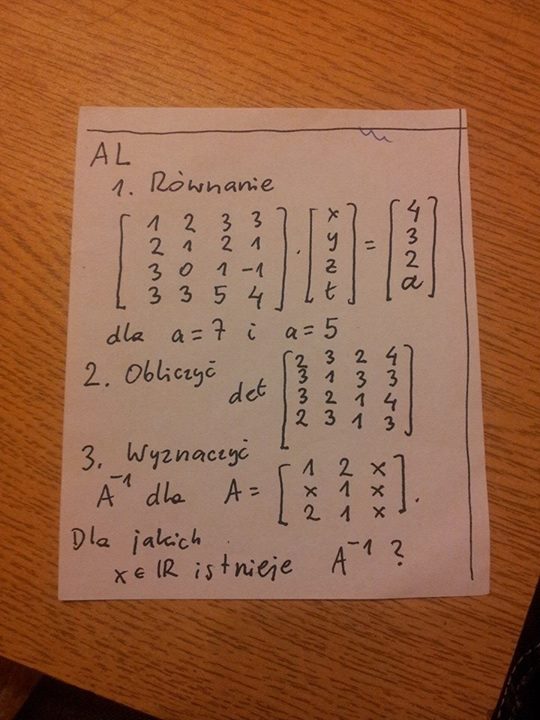 AL
1. Równanie
[ 1 2 3 3 ] [ x ] [ 4 ]
[ 2 1 2 1 ] · [ y ] = [ 3 ]
[ 3 0 1 -1 ] [ z ] [ 2 ]
[ 3 3 5 4 ] [ t ] [ a ]
dla a = 7 i a = 5
2. Obliczyć det [ 2 3 2 4 ]
[ 3 1 3 3 ]
[ 3 2 1 4 ]
[ 2 3 1 3 ]
3. Wyznaczyć
A⁻¹ dla A = [ 1 2 x ]
[ x 1 x ]
[ 2 1 x ].
Dla jakich
x ∈ IR istnieje A⁻¹ ?